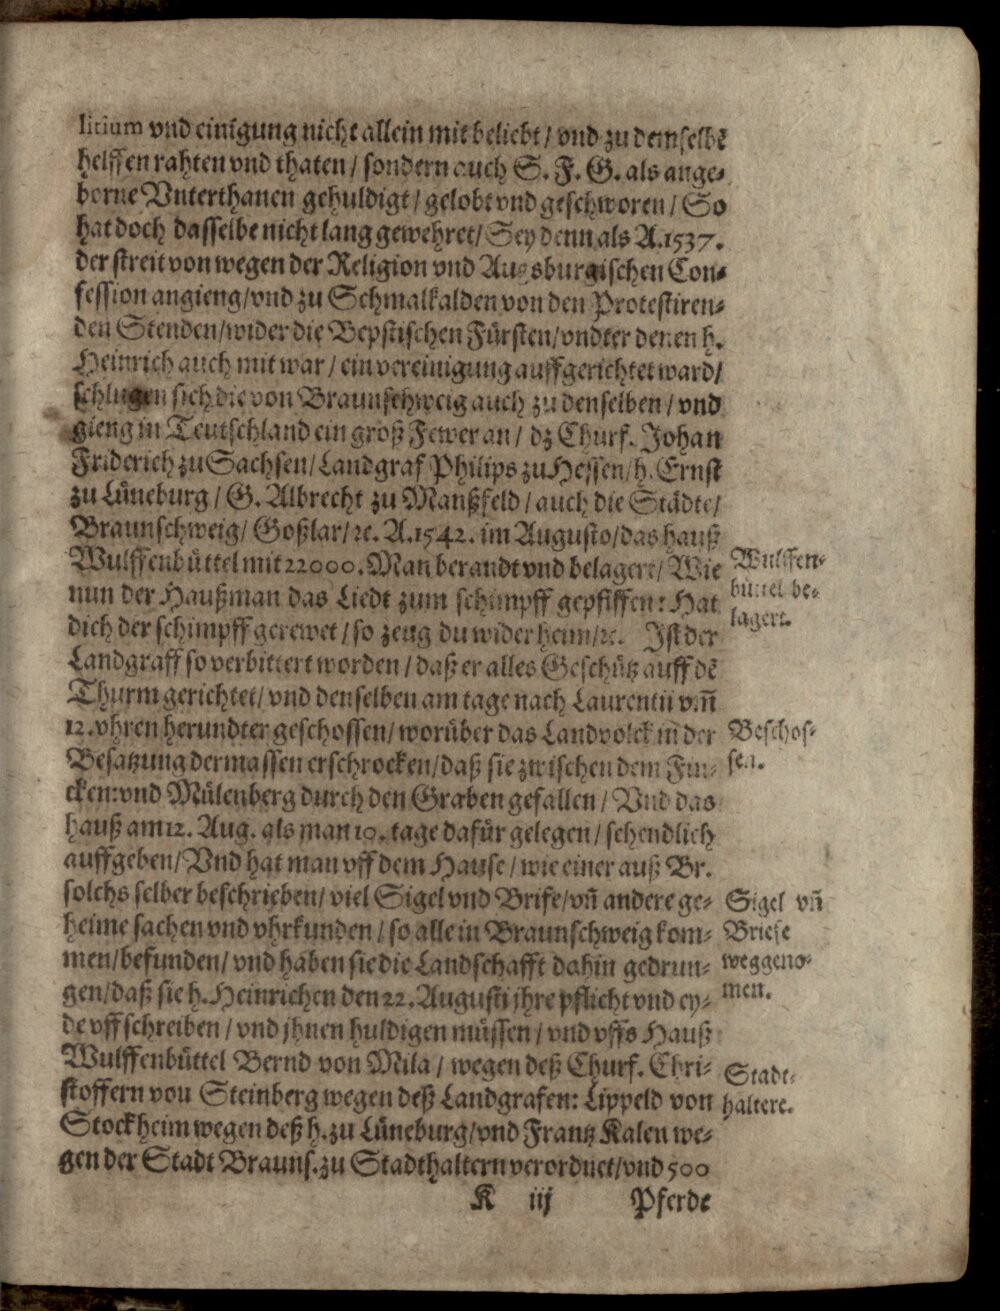 litium vnd einigung nicht allein mit beliebt / vnd zu demselbē
helffen rahten vnd thaten / sondern auch S. F. G. als ange-
borne Vnterthanen gehuldigt / gelobt vnd geschworen / So
hat doch dasselbe nicht lang gewehret / Sey denn als A.1537.
der streit von wegen der Religion vnd Augsburgischen Con-
fession angieng / vnd zu Schmalkalden von den Protestiren-
den Stenden / wider die Bepstischen Fürsten / vndter denen h.
Heinrich auch mit war / ein vereinigung auffgerichtet ward /
schlugen sich die von Braunschweig auch zu denselben / vnd
gieng in Teutschland ein groß Fewer an / dz Churf. Johan
Friderich zu Sachsen / Landgraf Philips zu Hessen / h. Ernst
zu Lüneburg / G. Albrecht zu Manßfeld / auch die Städte /
Braunschweig / Goßlar / ꝛc. A.1542. im Augusto / das hauß
Wulffenbüttel mit 22000. Man berandt vnd belagert / Wie
Wulffen-
büttel be-
lagert.
nun der Haußman das Liedt zum schimpff gepfiffen: Hat
dich der schimpff gerewet / so zeug du wider heim / ꝛc. Ist der
Landgraff so verbittert worden / daß er alles Geschütz auff dē
Thurm gerichtet / vnd denselben am tage nach Laurentii vm̄
12. vhren herundter geschossen / worüber das Landvolck in der
Beschos-
sen.
Besatzung dermassen erschrocken / daß sie zwischen dem Fin-
cken: vnd Mülenberg durch den Graben gefallen / Vnd das
hauß am 12. Aug. als man 10. tage dafür gelegen / schendlich
auffgeben / Vnd hat man vff dem Hause / wie einer auß Br.
solchs selber beschrieben / viel Sigel vnd Brife / vn̄ andere ge-
Sigel vn̄
Briefe
weggeno-
men.
heime sachen vnd vhrkunden / so alle in Braunschweig kom-
men / befunden / vnd haben sie die Landschafft dahin gedrun-
gen / daß sie h. Heinrichen den 22. Augusti jhre pflicht vnd ey-
de vffschreiben / vnd jhnen huldigen müssen / vnd vffs Hauß
Wulffenbüttel Bernd von Mila / wegen deß Churf. Chri-
Stadt-
haltere.
stoffern von Steinberg wegen deß Landgrafen: Lippeld von
Stockheim wegen deß h. zu Lüneburg / vnd Frantz Kalen we-
gen der Stadt Brauns. zu Stadthaltern verordnet / vnd 500
K iij Pferde